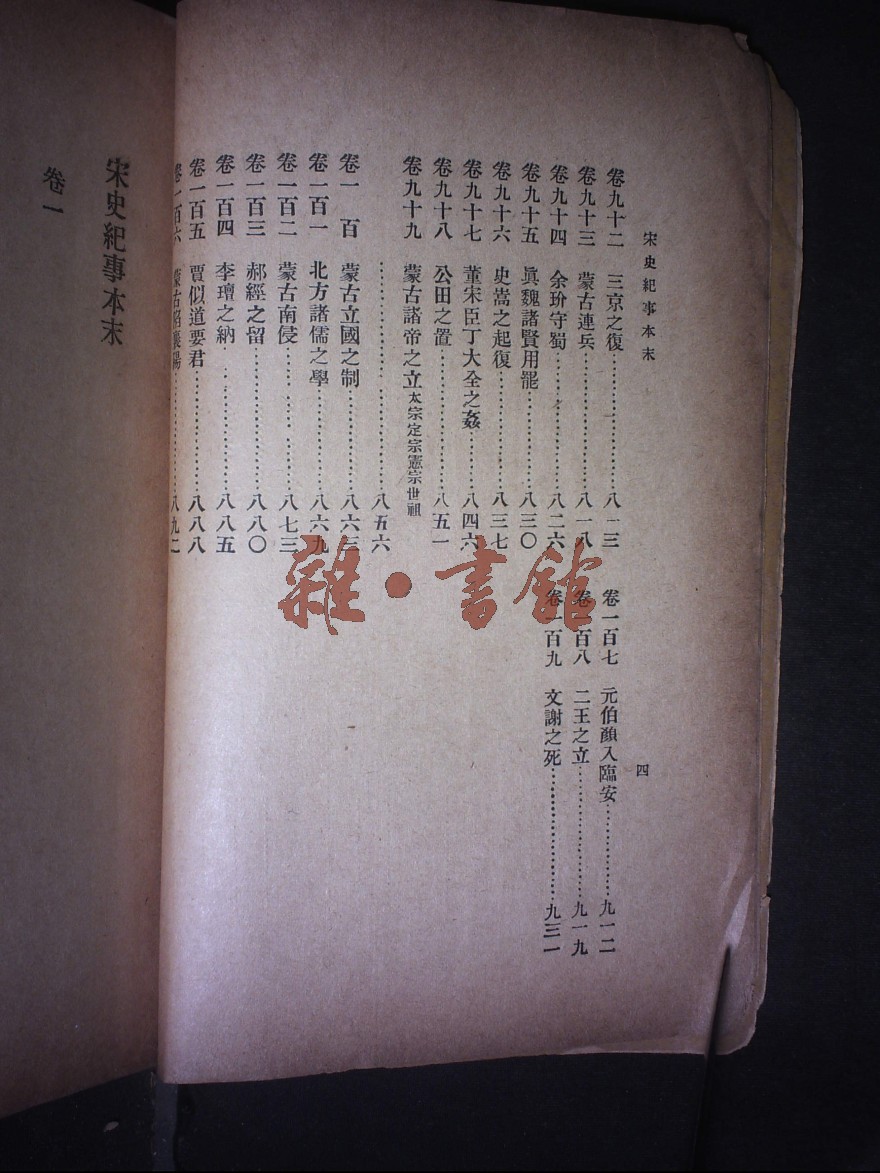 宋史紀事本末
四
卷九十二 三京之復……八一三
卷九十三 蒙古連兵……八一八
卷九十四 余玠守蜀……八二六
卷九十五 眞魏諸賢用罷……八三〇
卷九十六 史嵩之起復……八三七
卷九十七 董宋臣丁大全之姦……八四六
卷九十八 公田之置……八五一
卷九十九 蒙古諸帝之立太宗定宗憲宗世祖
……八五六
卷一 百 蒙古立國之制……八六三
卷一百一 北方諸儒之學……八六九
卷一百二 蒙古南侵……八七三
卷一百三 郝經之留……八八〇
卷一百四 李璮之納……八八五
卷一百五 賈似道要君……八八八
卷一百六 蒙古陷襄陽……八九二
卷一百七 元伯顏入臨安……九一二
卷一百八 二王之立……九一九
卷一百九 文謝之死……九三一
宋史紀事本末
卷一
雜·書館